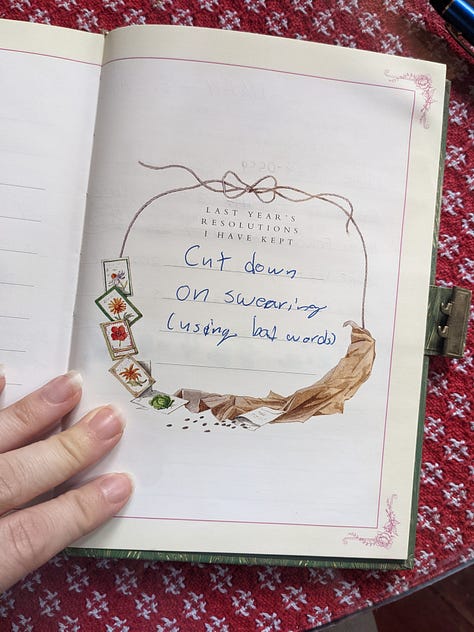 LAST YEAR'S
RESOLUTIONS
I HAVE KEPT
Cut down
on swearing
(using bad words)